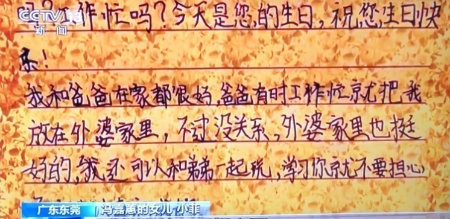 CCTV 13
新闻
工作忙吗?今天是您的生日,祝您生日快
乐!
我和爸爸在家都很好,爸爸有时工作忙就把我
放在外婆家里,不过没关系,外婆家里也挺
好的,我还可以和弟弟一起玩,学习你就不要担心
广东东莞 冯嘉蕙的女儿 小菲